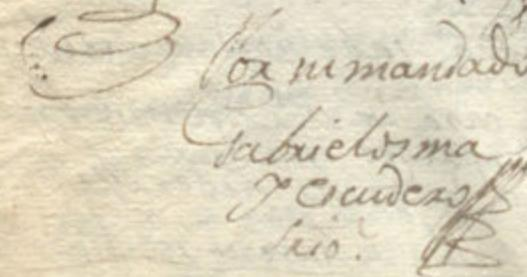 Por su mandado
Gabriel osma
y escudero
Srio.